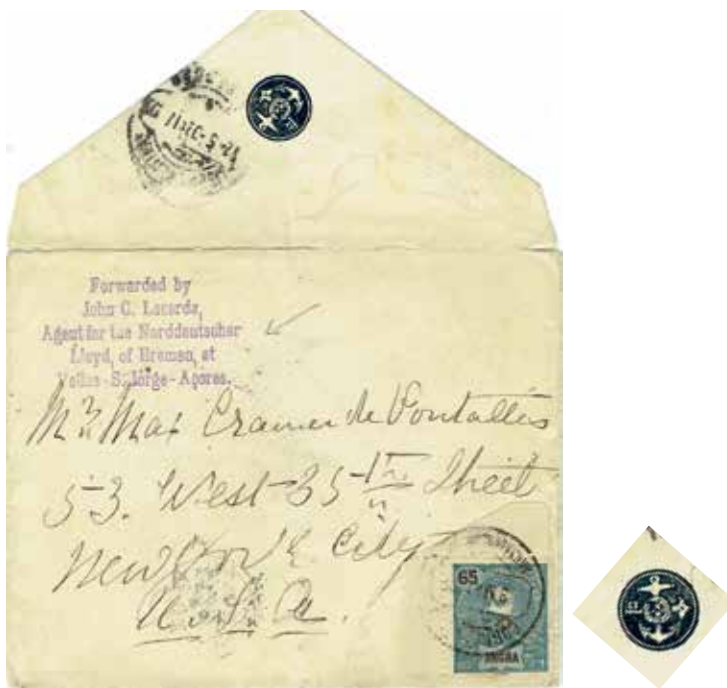 Forwarded by
John C. Lacerda,
Agent for the Norddeutscher
Lloyd, of Bremen, at
Vellas-S. Jorge-Açores.
Mr. Max Cramer de Pourtallés
53. West 35th Street
New York City
U.S.A.
65
ANGRA